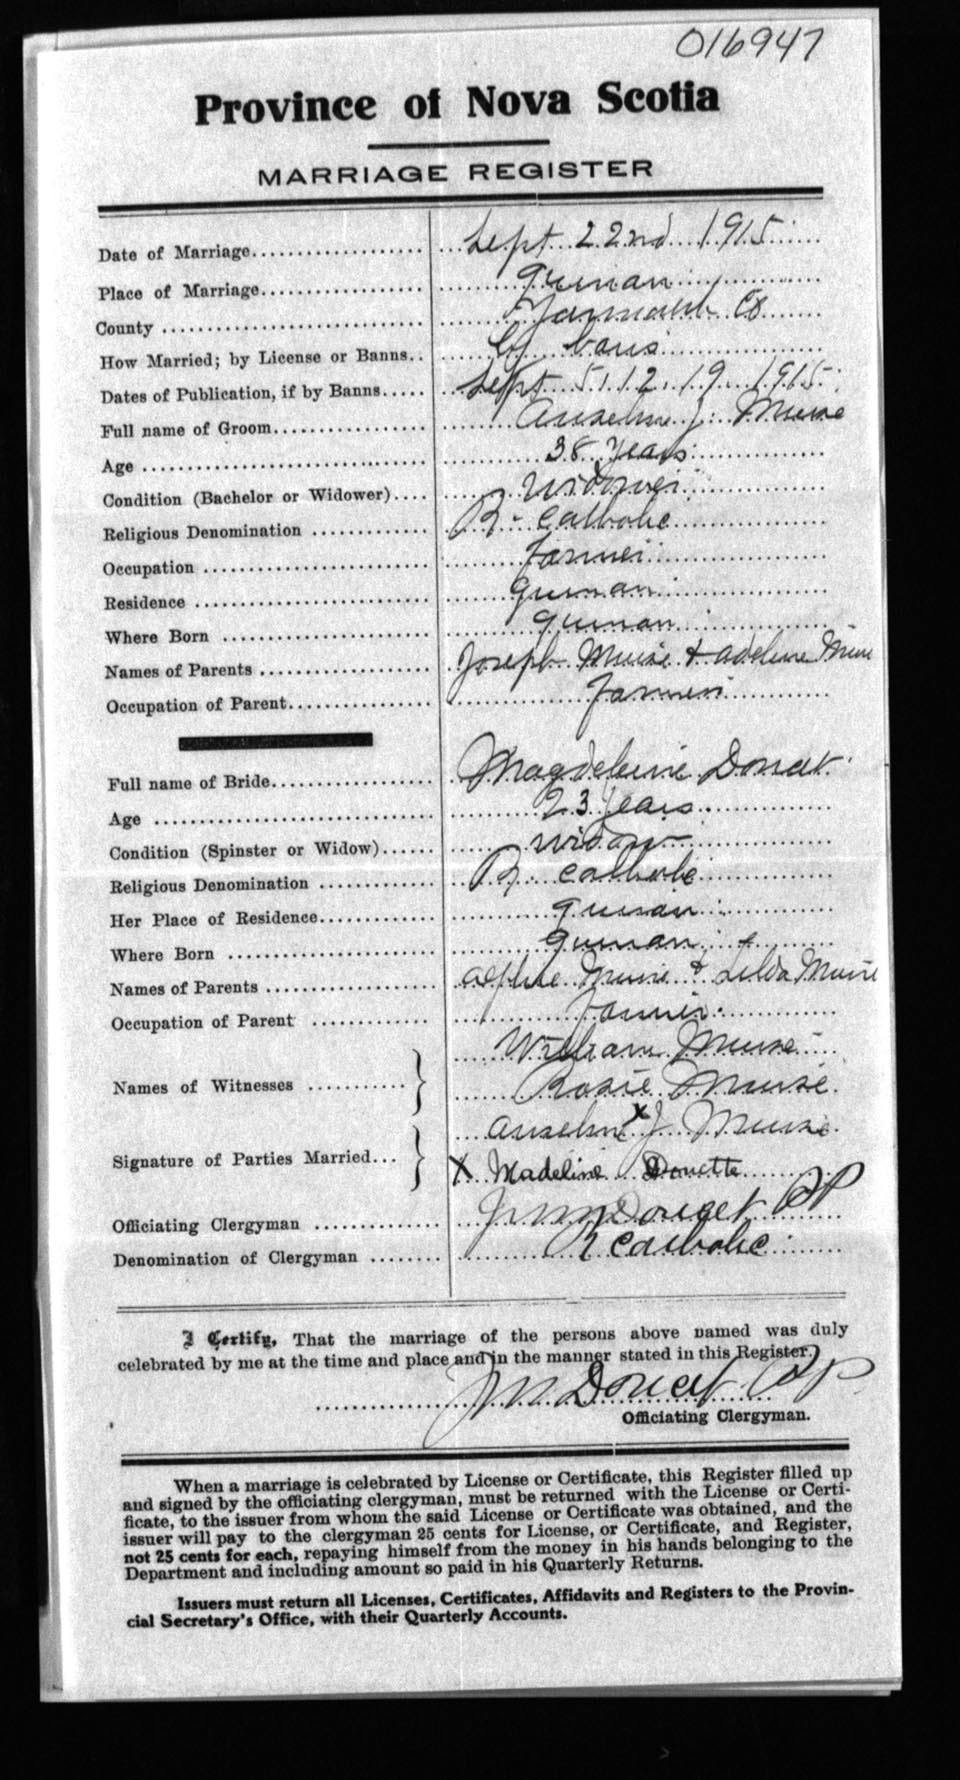 016947
Province of Nova Scotia
MARRIAGE REGISTER
Date of Marriage Sept 22nd 1915
Place of Marriage Quinan
County Yarmouth Co
How Married; by License or Banns By bans
Dates of Publication, if by Banns Sept 5, 12, 19 1915
Full name of Groom Anselm J. Muise
Age 38 Years
Condition (Bachelor or Widower) Widower
Religious Denomination R. Catholic
Occupation farmer
Residence Quinan
Where Born Quinan
Names of Parents Joseph Muise & Adeline Muise
Occupation of Parent farmer
Full name of Bride Magdeleine Doucet
Age 23 Years
Condition (Spinster or Widow) widow
Religious Denomination R. Catholic
Her Place of Residence Quinan
Where Born Quinan
Names of Parents Muise & Muise
Occupation of Parent farmer
William Muise
Names of Witnesses Rosie Muise
Anselm X J Muise
Signature of Parties Married X Madeline Doucette
Officiating Clergyman Doucet PP
Denomination of Clergyman R Catholic
I Certify, That the marriage of the persons above named was duly
celebrated by me at the time and place and in the manner stated in this Register.
Doucet PP
Officiating Clergyman.
When a marriage is celebrated by License or Certificate, this Register filled up
and signed by the officiating clergyman, must be returned with the License or Certi-
ficate, to the issuer from whom the said License or Certificate was obtained, and the
issuer will pay to the clergyman 25 cents for License, or Certificate, and Register,
not 25 cents for each, repaying himself from the money in his hands belonging to the
Department and including amount so paid in his Quarterly Returns.
Issuers must return all Licenses, Certificates, Affidavits and Registers to the Provin-
cial Secretary's Office, with their Quarterly Accounts.